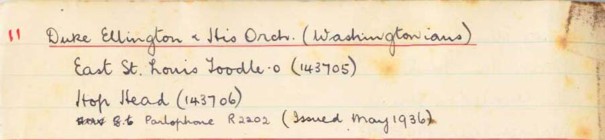 11 Duke Ellington & His Orch. (Washingtonians)
East St. Louis Toodle-o (143705)
Hop Head (143706)
8.6 Parlophone R2202 (Issued May 1936)